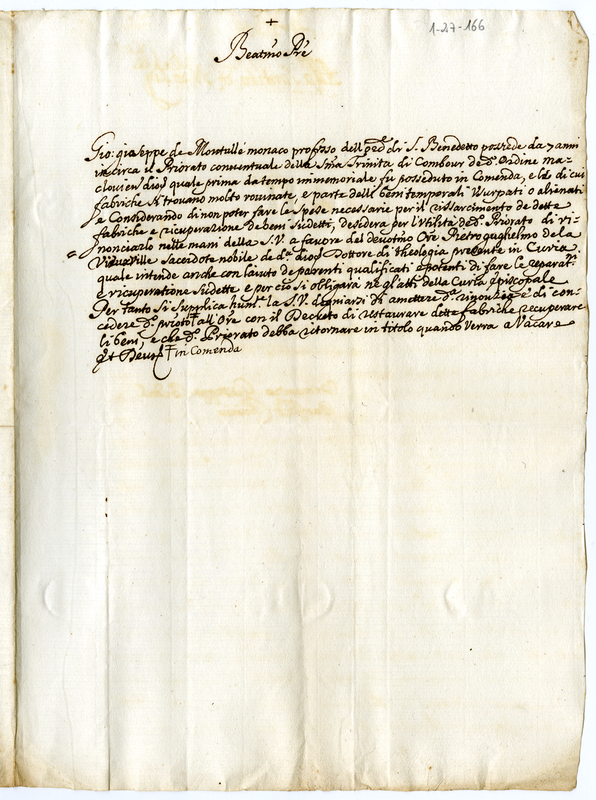 +
1-27-166
Beatmo Pre
Gio: giuseppe de Montulle monaco professo dell'ordi di S. Benedetto possiede da 7 anni
incirca il Priorato conventuale della Sma Trinita di Combour de do. Ordine ma-
clovien dioj quale prima da tempo immemoriale fu posseduto in Comenda, e le di cui
fabriche si trovano molto rovinate, e parte delli beni temporali Usurpati o alienati
e Considerando di non poter fare le spese necessarie per il rissarcimento de dette
fabriche e ricuperazione de beni sudetti, desidera per l'Utilita de do. Priorato di ri-
nonciarlo nelle mani della S.V. a favore del devotmo Ore Pietro guglielmo de la
Vieuville Sacerdote nobile de da. dioj Dottore di theologia presente in Curia
quale intende anche con laiuto de parenti qualificati e potenti di fare le reparatni
e ricuperatione sudette e per cio si obligarà ne gli atti della Curia episcopale
Per tanto si supplica huml. la S.V. degniarsi di amettere da. rinonzia e di con-
cedere do. prioto ‡ all'Ore con il Decreto di restaurare dette fabriche recuperare
li beni, e che do. Priorato debba ritornare in titolo quando verra a Vacare
Qt Deus ‡ in Comenda